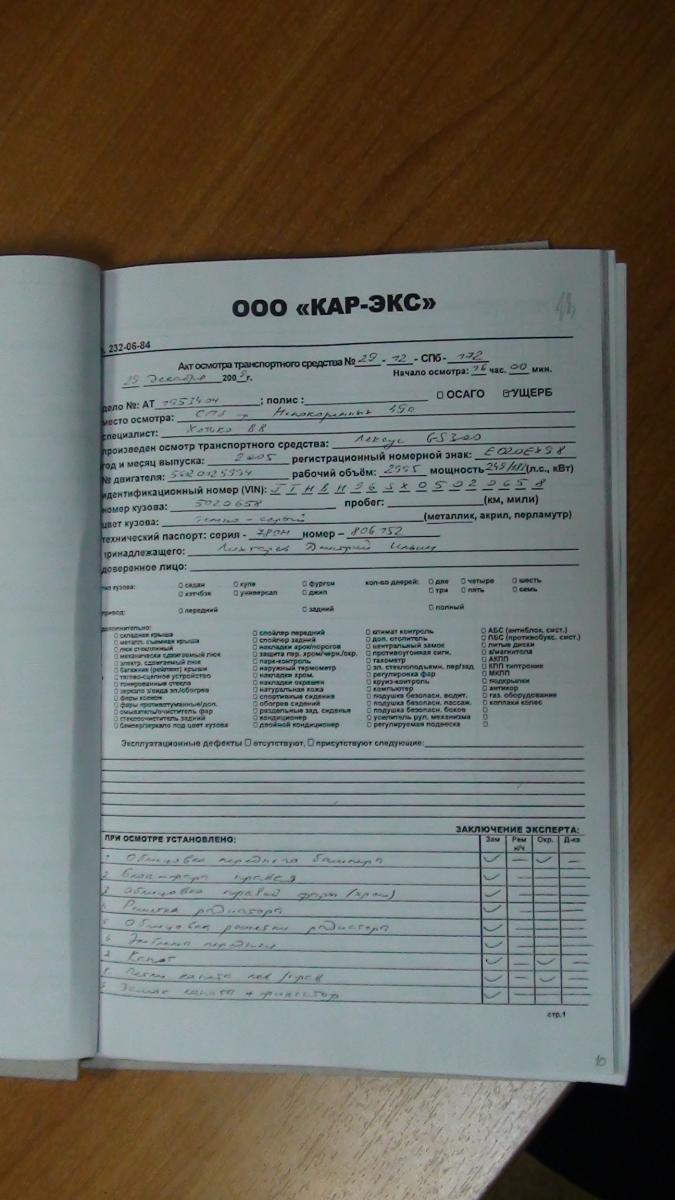 ООО «КАР-ЭКС»
232-06-84
Акт осмотра транспортного средства № 29 - 12 - СПб - 172
29 декабря 200 г. Начало осмотра: 16 час. 00 мин.
дело №: АТ 1953404 ; полис : ОСАГО УЩЕРБ
место осмотра: СПб пр Непокоренных
специалист: ВВ
произведен осмотр транспортного средства: Лексус GS300
год и месяц выпуска: 2005 регистрационный номерной знак:
№ двигателя: рабочий объём: 2995 мощность 249 (л.с., кВт)
идентификационный номер (VIN):
номер кузова: 5020658 пробег: (км, мили)
цвет кузова: темно - серый (металлик, акрил, перламутр)
технический паспорт: серия - номер – 806752
принадлежащего: Дмитрий Ильич
доверенное лицо:
тип кузова: седан купе фургон кол-во дверей: две четыре шесть
хэтчбэк универсал джип три пять семь
привод: передний задний полный
дополнительно:
складная крыша спойлер передний климат контроль АБС (антиблок. сист.)
металл. съемная крыша спойлер задний доп. отопитель ПБС (противобукс. сист.)
люк стеклянный накладки арок/порогов центральный замок литые диски
механически сдвигаемый люк защита пер. хром/черн./окр. противоугонная сигн. а/магнитола
электр. сдвигаемый люк парк-контроль тахометр АКПП
багажник (рейлинг) крыши наружный термометр эл. стеклоподъемн. пер/зад КПП типтроник
тягово-сцепное устройство накладки хром. регулировка фар МКПП
тонированные стекла накладки окрашен круиз-контроль подкрылки
зеркало з/вида эл./обогрев натуральная кожа компьютер антикор
фары ксенон спортивные сидения подушка безопасн. водит. газ. оборудование
фары противотуманные/доп. обогрев сидений подушка безопасн. пассаж. колпаки колес
омыватель/очиститель фар раздельные зад. сиденья подушка безопасн. боков
стеклоочиститель задний кондиционер усилитель рул. механизма
бампер/зеркало под цвет кузова двойной кондиционер регулируемая подвеска
Эксплуатационные дефекты отсутствуют, присутствуют следующие:
ЗАКЛЮЧЕНИЕ ЭКСПЕРТА:
ПРИ ОСМОТРЕ УСТАНОВЛЕНО: Зам Рем н/ч Окр. Д-ка
1 Облицовка переднего бампера
2 Блок-фара правая
3 Облицовка правой фары (хром)
4 Решетка радиатора
5 Облицовка решетки радиатора
6 Эмблема передняя
7 Капот
8 Петли капота лев / прав
9 Замок капота + фиксатор
стр.1
10